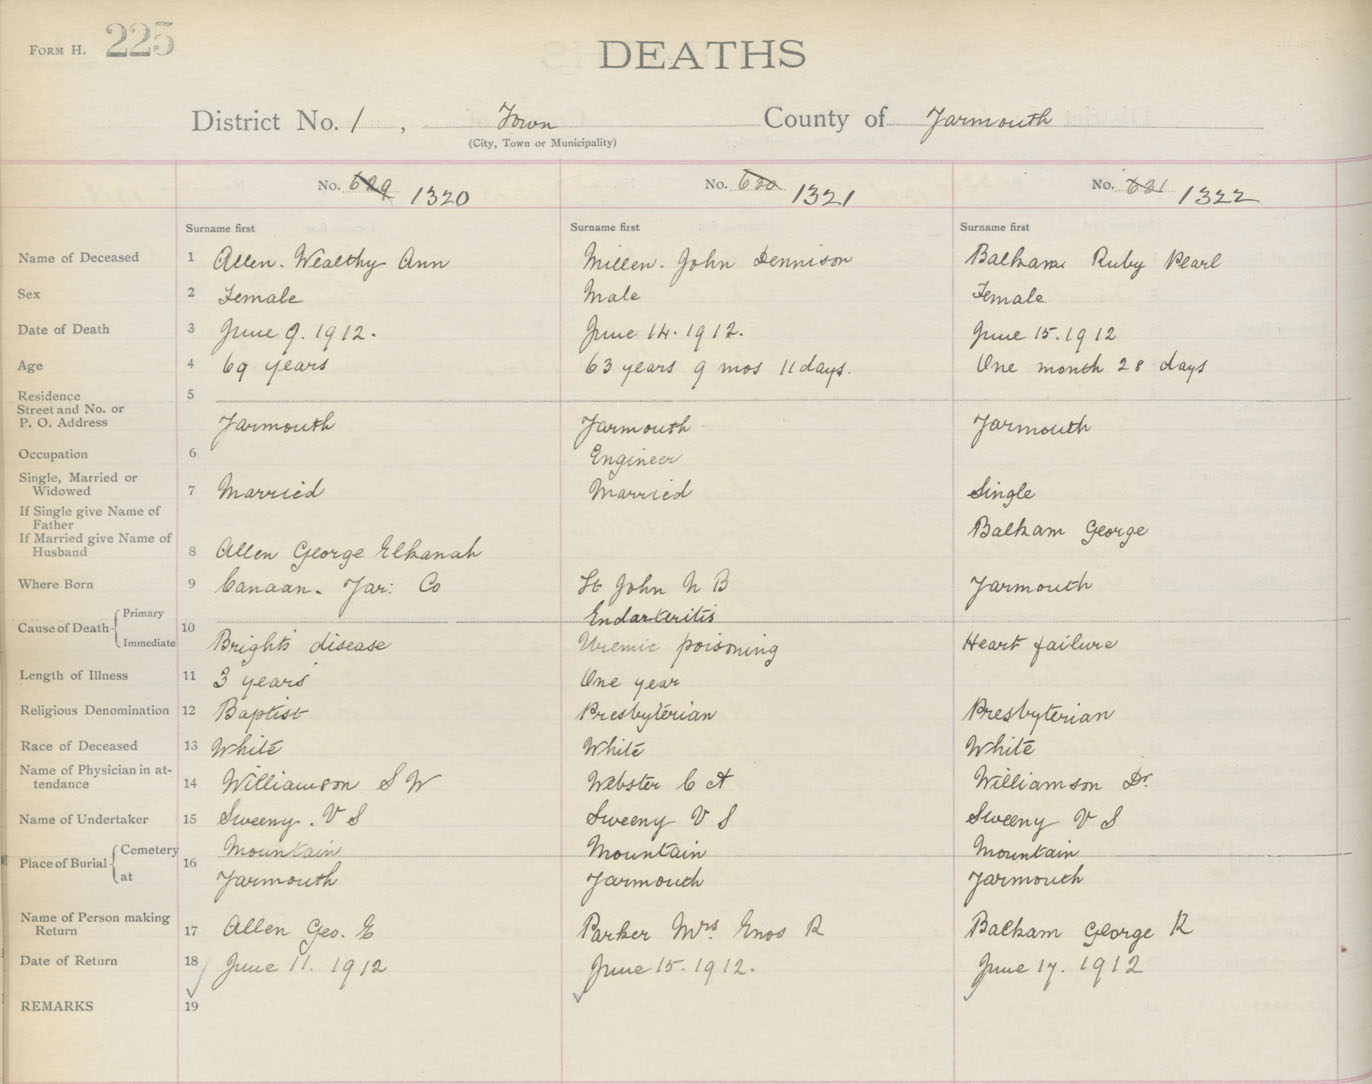 FORM H. 225
DEATHS
District No. 1, Town County of Yarmouth
(City, Town or Municipality)
No. 629 1320 No. 630 1321 No. 631 1322
Surname first Surname first Surname first
Name of Deceased 1 Allen. Wealthy Ann Millen. John Dennison Balkam Ruby Pearl
Sex 2 Female Male Female
Date of Death 3 June 9. 1912. June 14. 1912. June 15. 1912
Age 4 69 years 63 years 9 mos 11 days. One month 28 days
Residence 5
Street and No. or
P. O. Address Yarmouth Yarmouth Yarmouth
Occupation 6 Engineer
Single, Married or
Widowed 7 Married Married Single
If Single give Name of
Father Balkam George
If Married give Name of
Husband 8 Allen George Elkanah
Where Born 9 Canaan. Yar: Co St John N B Yarmouth
Cause of Death Primary 10 Endarteritis
Immediate Brights disease Uremic poisoning Heart failure
Length of Illness 11 3 years One year
Religious Denomination 12 Baptist Presbyterian Presbyterian
Race of Deceased 13 White White White
Name of Physician in at-
tendance 14 Williamson S W Webster C A Williamson Dr.
Name of Undertaker 15 Sweeny. V S Sweeny V S Sweeny V S
Place of Burial Cemetery 16 Mountain Mountain Mountain
at Yarmouth Yarmouth Yarmouth
Name of Person making
Return 17 Allen Geo. E Parker Mrs. Enos R Balkam George R
Date of Return 18 June 11. 1912 June 15. 1912. June 17. 1912
REMARKS 19